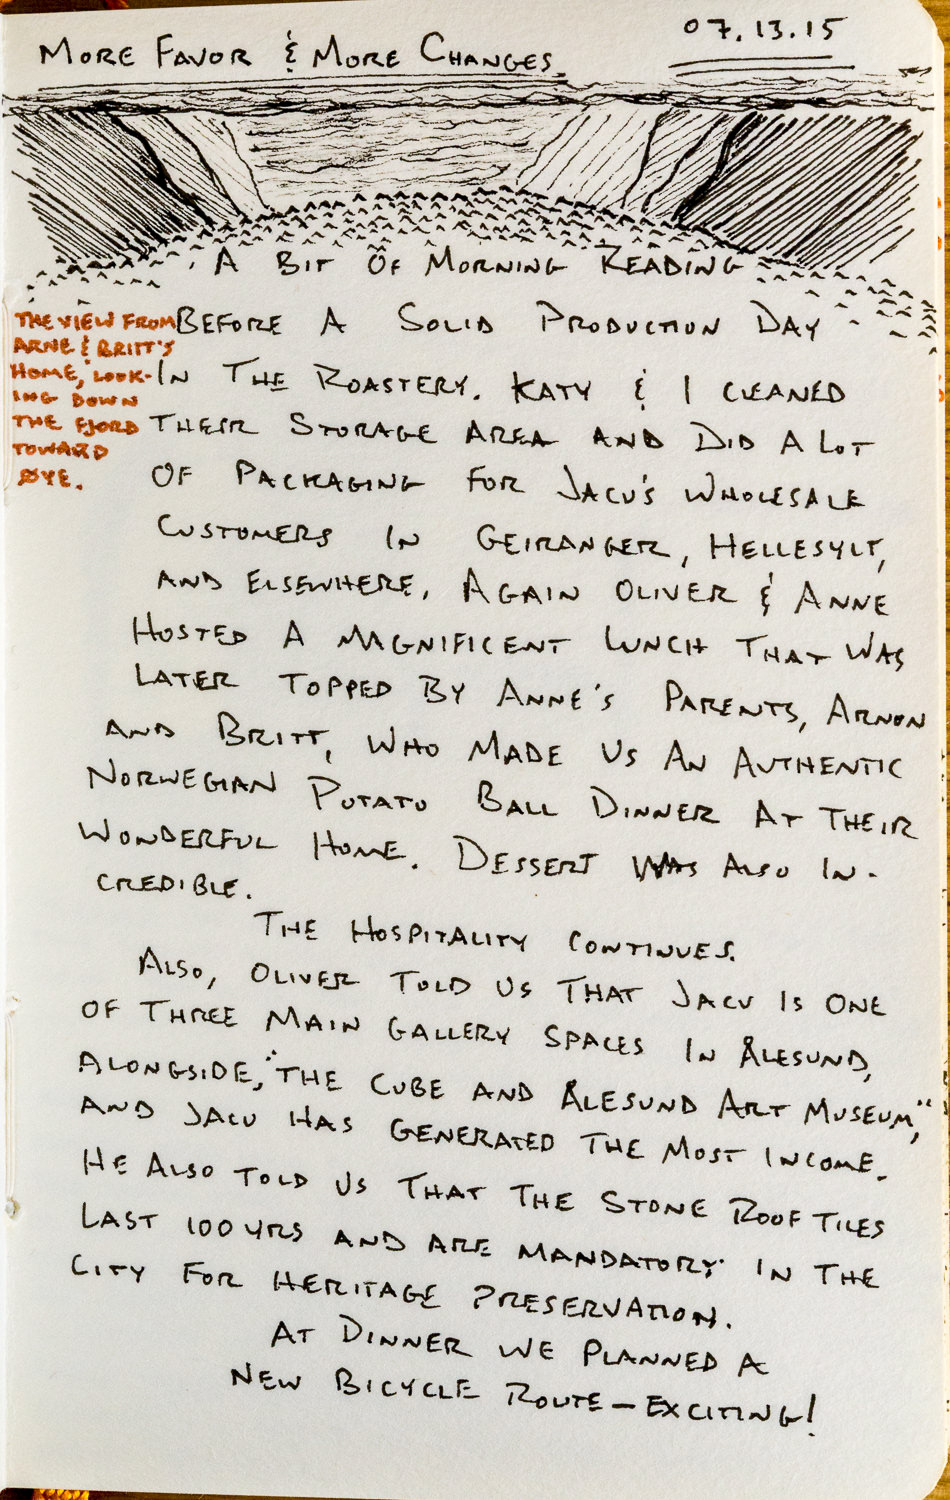 07.13.15
MORE FAVOR & MORE CHANGES
A BIT OF MORNING READING
BEFORE A SOLID PRODUCTION DAY
IN THE ROASTERY. KATY & I CLEANED
THEIR STORAGE AREA AND DID A LOT
OF PACKAGING FOR JACU'S WHOLESALE
CUSTOMERS IN GEIRANGER, HELLESYLT,
AND ELSEWHERE. AGAIN OLIVER & ANNE
HOSTED A MAGNIFICENT LUNCH THAT WAS
LATER TOPPED BY ANNE'S PARENTS, ARNON
AND BRITT, WHO MADE US AN AUTHENTIC
NORWEGIAN POTATO BALL DINNER AT THEIR
WONDERFUL HOME. DESSERT WAS ALSO IN-
CREDIBLE.
THE HOSPITALITY CONTINUES.
ALSO, OLIVER TOLD US THAT JACU IS ONE
OF THREE MAIN GALLERY SPACES IN ÅLESUND,
ALONGSIDE, "THE CUBE AND ÅLESUND ART MUSEUM",
AND JACU HAS GENERATED THE MOST INCOME.
HE ALSO TOLD US THAT THE STONE ROOF TILES
LAST 100 YRS AND ARE MANDATORY IN THE
CITY FOR HERITAGE PRESERVATION.
AT DINNER WE PLANNED A
NEW BICYCLE ROUTE – EXCITING!
THE VIEW FROM
ARNE & BRITT'S
HOME, LOOK-
ING DOWN
THE FJORD
TOWARD
ØYE.